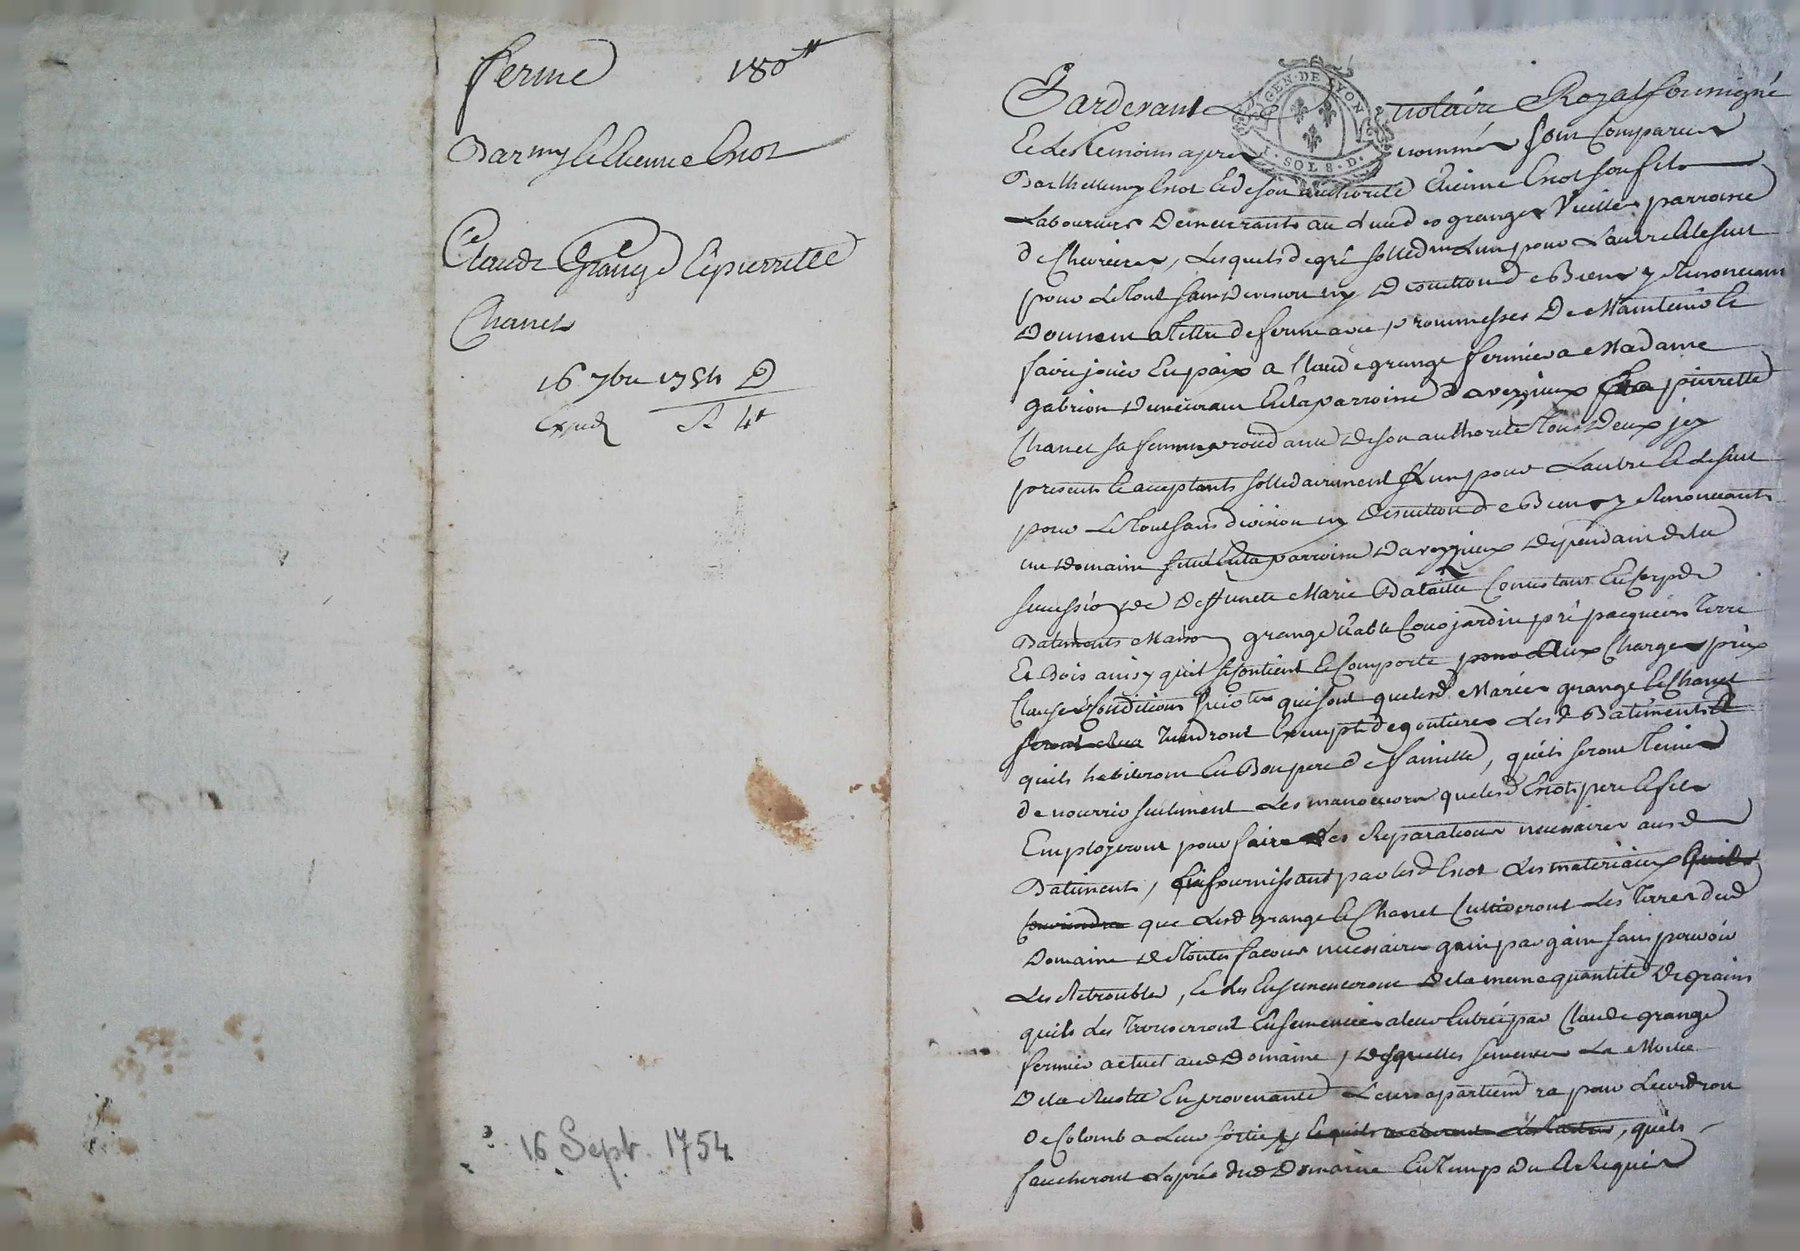 ferme 180ᵗᵗ
Barmy & Etienne Criot
Claude Grange & pierrette
Chanet
16 7bre 1754
Exped
16 Sept. 1754
Pardevant Le notaire Royal soussigné
GEN. DE LYON
1. SOL 8. D.
Et les temoins apres nommés sont Comparus
Barthellemy et de son authorité Etienne son fils
Laboureurs Demeurants au lieu des granges Vieilles parroisse
de Chevrieres, Lesquels de gré sollidt Lun pour Lautre & le seul
pour Le tout sans division ny Discution de Biens y Renonceant
Donnent a tittre de ferme avec prommesses De Maintenir &
faire jouir En paix a Claude grange fermier a Madame
gabrion Demeurant En la parroisse D'aveizieux & a pierrette
Chanet sa femme procedante de son authorité tous Deux icy
presents & acceptants sollidairement L'un pour Lautre & le seul
pour Le tout sans division ny Discution de Biens y Renonceants
un Domaine scitué En la parroisse D'aveizieux Dependant de la
succession de Deffunette Marie Bataille Consistant En
Batiments Maison grange Etable Cour jardin pré pacquiers Terre
Et Bois ainsy quil se Contient & Comporte aux Charges prix
Clauses & Conditions suivantes qui sont que lesd. Mariés grange & Chanet
Tiendront Exempt de goutieres Lesd. Batiments
quils habiteront En Bon pere de famille, quils seront Tenus
de nourrir seulement Les manoeuvres que lesd. pere & fils
Employeront pour faire Les Reparations necessaires ausd.
Batiments, En fournissant par lesd. Les materiaux
que Lesd. grange & Chanet Cultiveront Les Terres dud.
Domaine De toutes facons necessaires gain par gain sans pouvoir
Les Retroubler, & Les Ensemenceront De la meme quantité De grains
quils Les Trouveront Ensemencés a leur Entrée par Claude grange
fermier actuel aud. Domaine, Desquelles semences La Moitié
De la Recolte En provenante Leurs apartiendra pour Leur droit
de Colomb a Leur sortie, quils
faucheront Le pré dud. Domaine En Temps Du & Requis